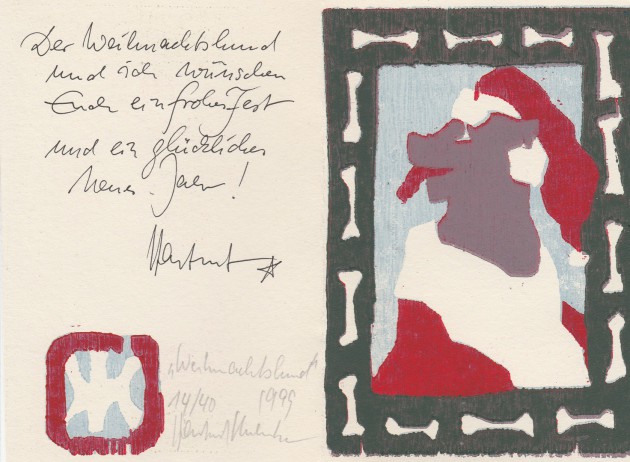 Der Weihnachtshund
und ich wünschen
Euch ein frohes Fest
und ein glückliches
Neues Jahr!
Hartmut
"Weihnachtshund"
14/40 1999
Hartmut